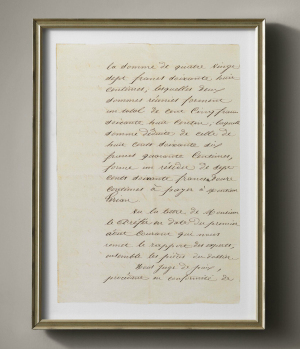 la somme de quatre vingt
sept francs soixante huit
centimes, lesquelles deux
sommes réunies forment
un total de cent cinq francs
soixante huit centimes, laquelle
somme déduite de celle de
huit cents soixante dix
francs quarante centimes,
forme un résidu de sept
cents soixante francs
centimes à payer à Monsieur
Vu la lettre de Monsieur
le en date du premier
août courant que nous
remet le rapport des experts,
ensemble les pièces du dossier
Nous Juge de paix,
procédant en conformité de